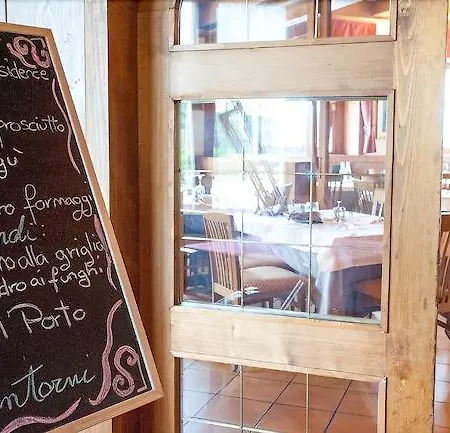 sidence
prosciutto
gù
ro formaggi
ndi:
no alla griglia
dro ai funghi
l Porto
ntorni